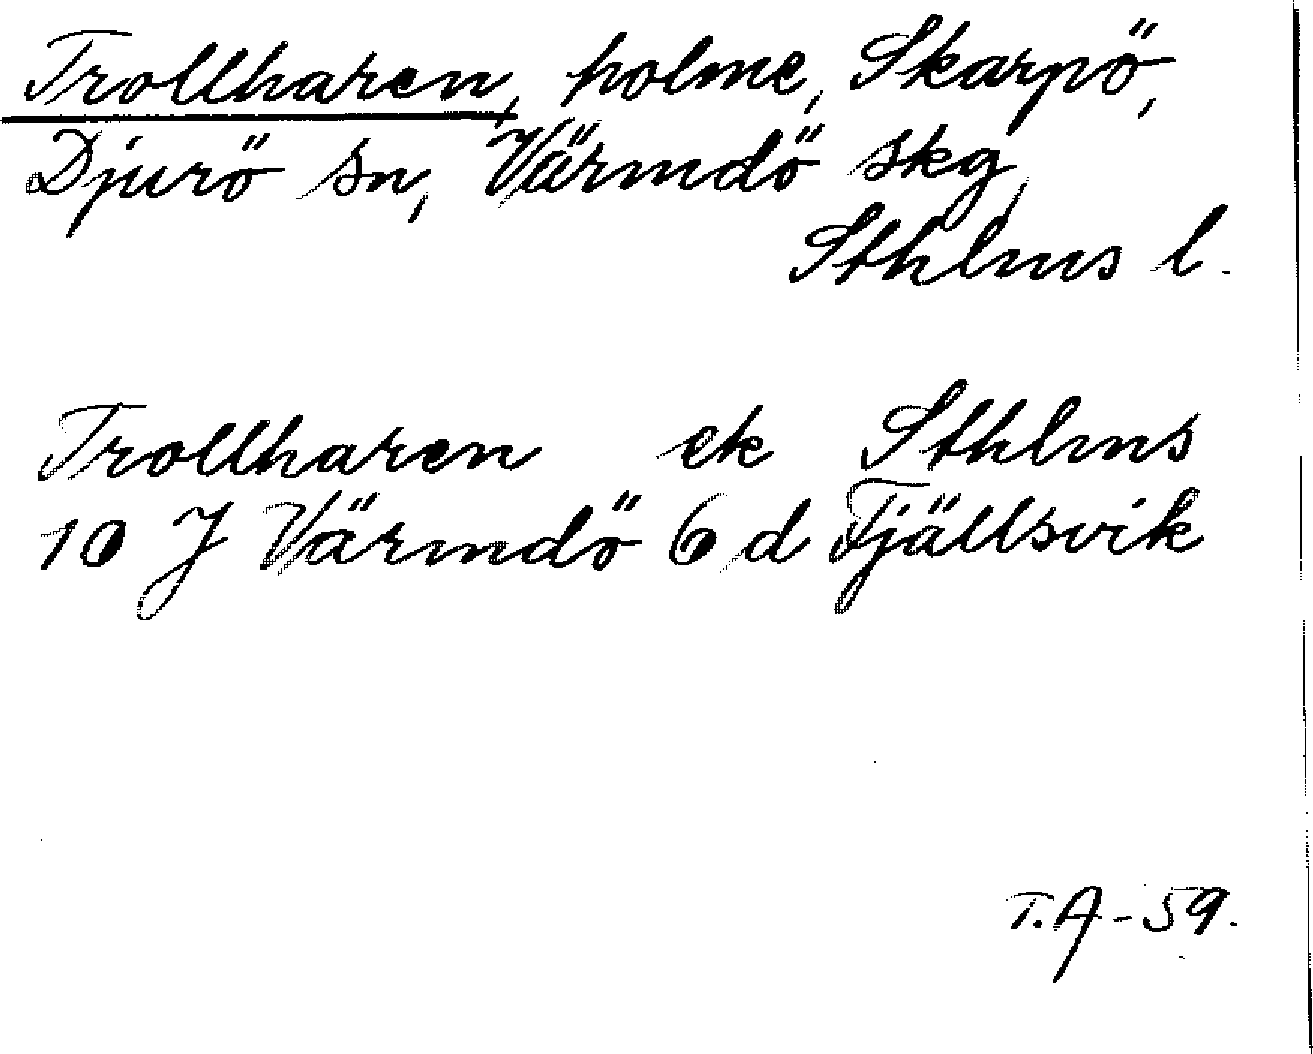 Trollharen, holme, Skarpö,
Djurö sn, Värmdö skg,
Sthlms l.
Trollharen ek Sthlms
10 J Värmdö 6 d Fjällsvik
T.A-59.